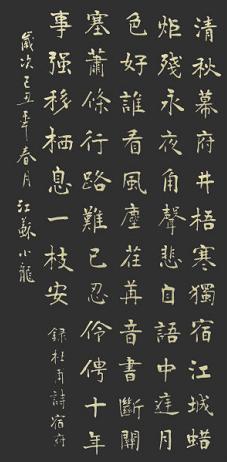 清秋幕府井梧寒獨宿江城蜡
炬殘永夜角聲悲自語中庭月
色好誰看風塵荏苒音書斷關
塞蕭條行路難已忍伶俜十年
事强移栖息一枝安
錄杜甫詩宿府
歲次己丑年春月江蘇小龍